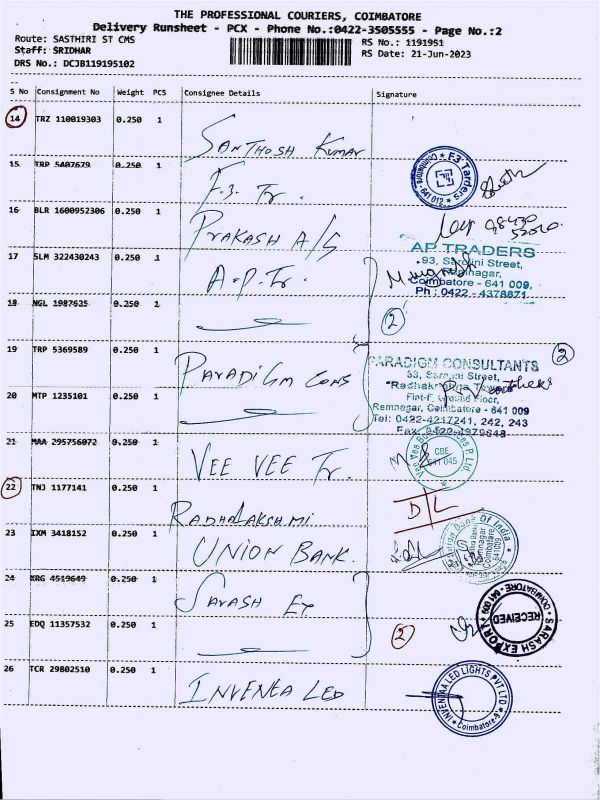 THE PROFESSIONAL COURIERS, COIMBATORE
Delivery Runsheet - PCX - Phone No.:0422-3505555 - Page No.:2
Route: SASTHIRI ST CMS
RS No.: 1191951
Staff: SRIDHAR
RS Date: 21-Jun-2023
DRS No.: DCJB119195102
S No Consignment No Weight PCS Consignee Details Signature
14 TRZ 110019303 0.250 1 SANTHOSH KUMAR
15 TRP 5407679 0.250 1 F.3. Tr.
F3 Tarders
641 012
16 BLR 1600952306 0.250 1 PRAKASH A/S
17 SLM 322430243 0.250 1 A.P. Tr.
AP TRADERS
93, Sarojini Street,
Ramnagar,
Coimbatore - 641 009.
Ph : 0422 - 4378871
18 NGL 1987625 0.250 1
2
19 TRP 5369589 0.250 1 PARADIGM CONS
PARADIGM CONSULTANTS
2
33, Sarojini Street,
"Radhakrishna Towers"
Flat-F, Ground Floor,
Ramnagar, Coimbatore - 641 009
Tel: 0422-4217241, 242, 243
Fax: 0422-4379648
20 MTP 1235101 0.250 1
21 MAA 295756072 0.250 1 VEE VEE Tr.
CBE
641 045
22 TNJ 1177141 0.250 1 RADHALAKSHMI
D/L
23 IXM 3418152 0.250 1 UNION BANK.
Union Bank Of India
Ramnagar
Coimbatore
641009
24 KRG 4519649 0.250 1 SARASH EX
RECEIVED
SARASH EXPORT
COIMBATORE - 641 009
25 EDQ 11357532 0.250 1
2
26 TCR 29802510 0.250 1 INVENTA LED
INVENTAA LED LIGHTS PVT LTD
Coimbatore-9